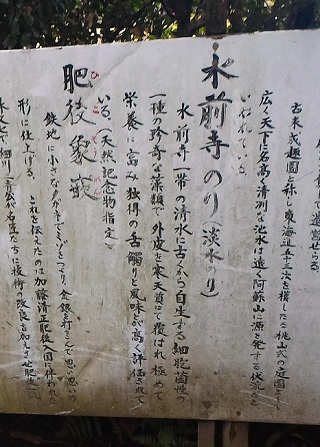 古来成趣園と称し東海道五十三次を模した桃山式の庭園として
広く天下に名高く清冽な池水は遠く阿蘇山に源を発する伏流と
いわれている。
水前寺のり(淡水のり)
水前寺一帯の清水に古くから自生する細胞菌性の
一種の珍奇な藻類で外皮を寒天質にて覆はれ極めて
栄養に富み独得の舌觸りと風味とが高く評価されて
いる。(天然記念物指定)
肥後象嵌
鉄地に小さなタガネでミゾをつくり、金銀を打ちこんで思い思いの
形に仕上げる。これを伝えたのは加藤清正肥後入国に伴われた